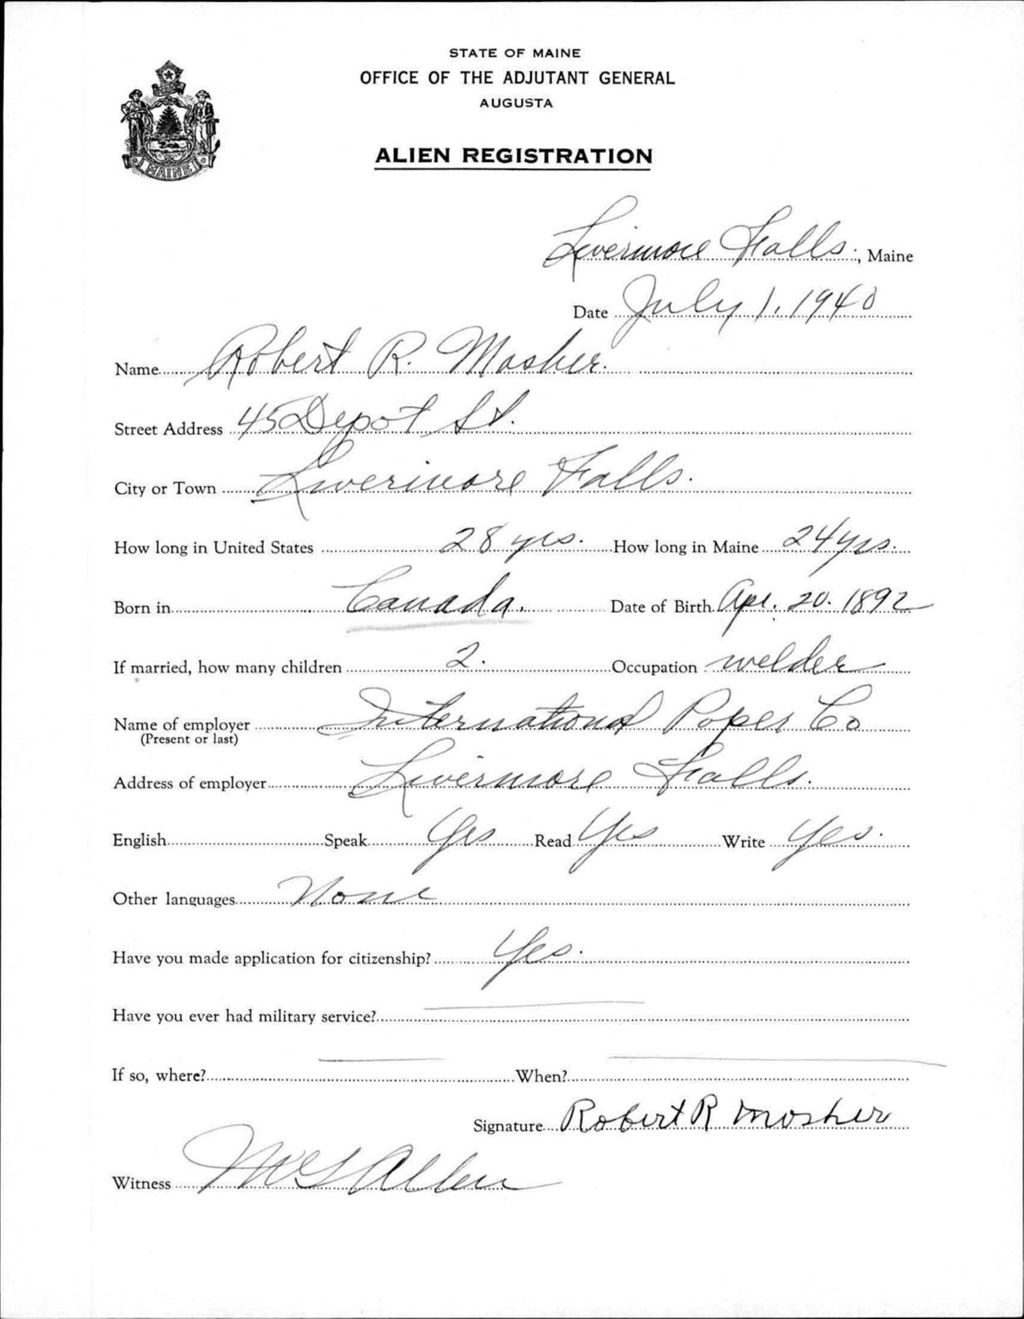 STATE OF MAINE
OFFICE OF THE ADJUTANT GENERAL
AUGUSTA
ALIEN REGISTRATION
MAINE
Livermore Falls, Maine
Date July 1, 1940
Name Robert R. Mosher.
Street Address 45 Depot St.
City or Town Livermore Falls.
How long in United States 28 yrs. How long in Maine 24 yrs.
Born in Canada. Date of Birth Apr. 20. 1892
If married, how many children 2. Occupation welder
Name of employer International Paper Co
(Present or last)
Address of employer Livermore Falls.
English Speak Yes Read Yes Write Yes.
Other languages None
Have you made application for citizenship? Yes.
Have you ever had military service?
If so, where? When?
Signature Robert R Mosher
Witness Allen